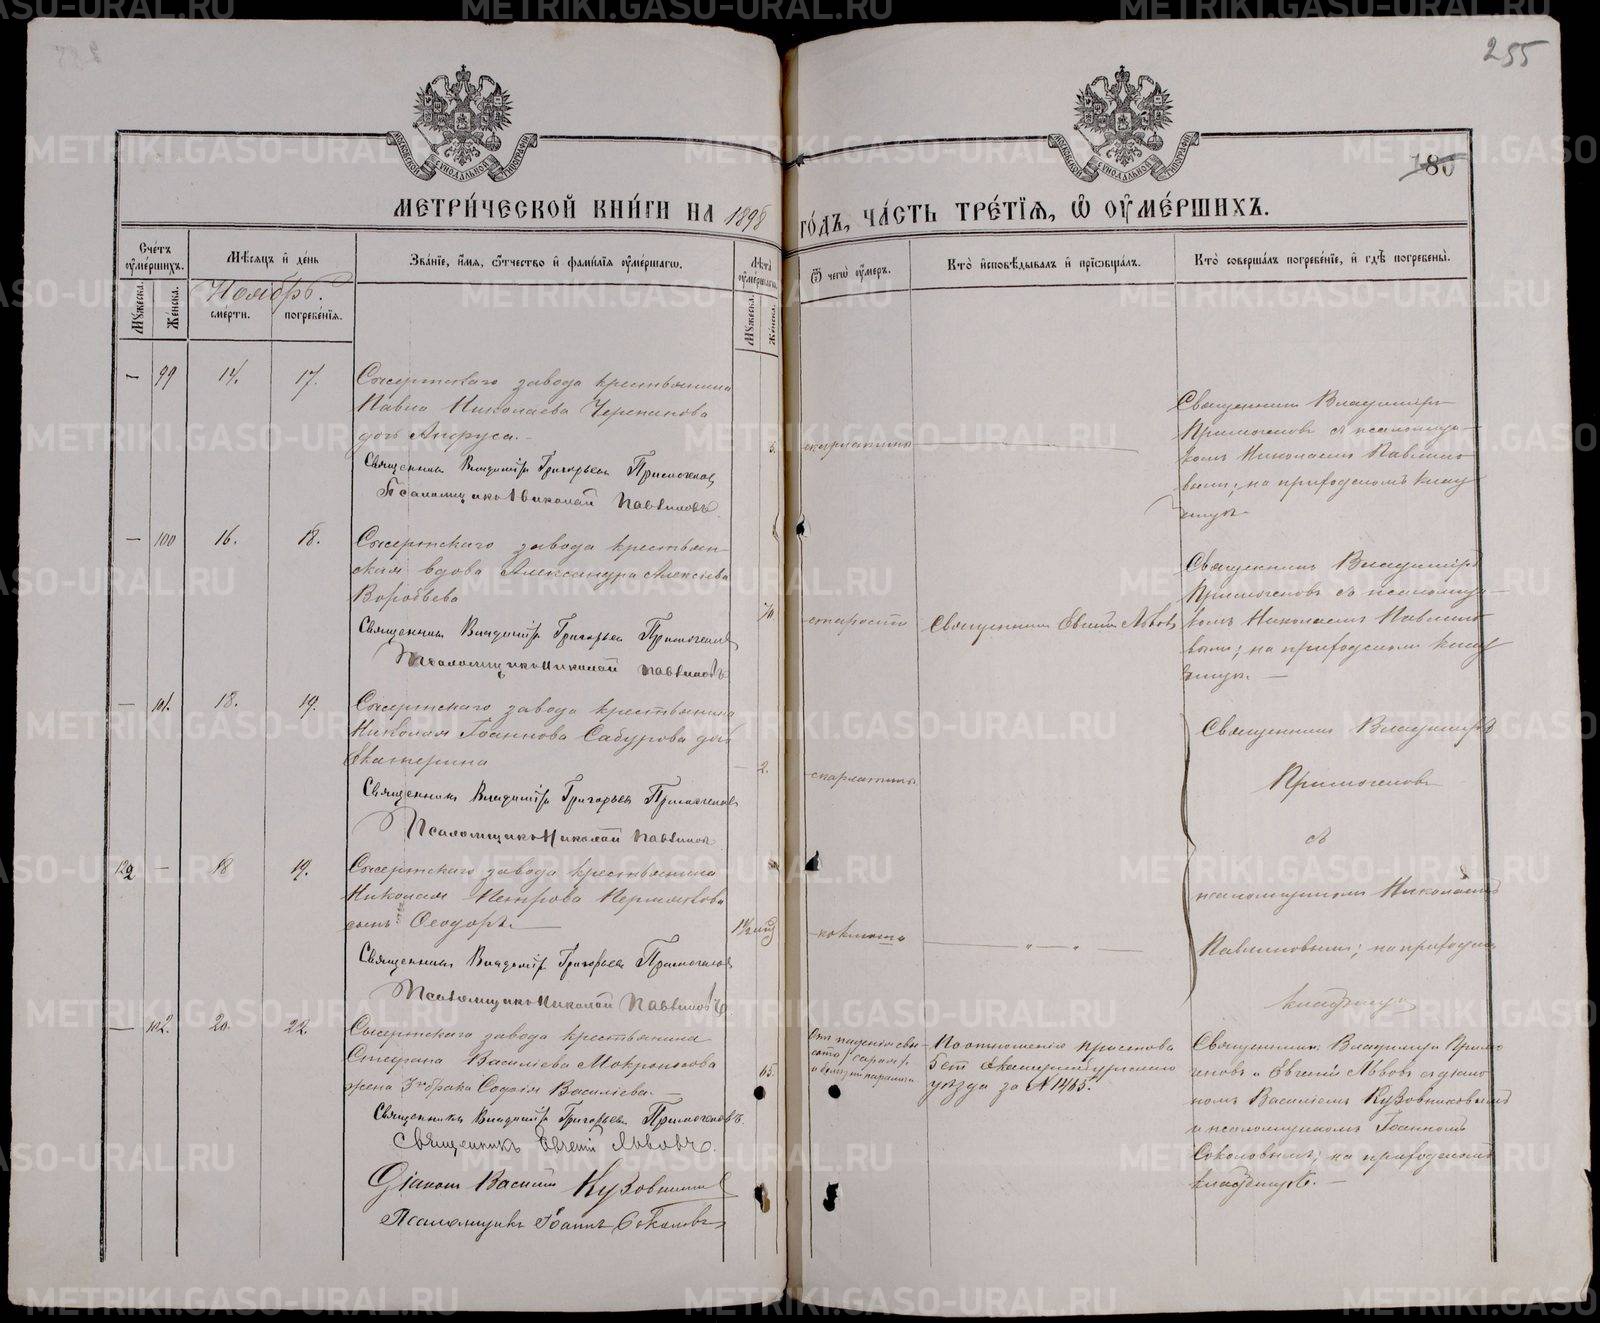 255
180
МЕТРИ́ЧЕСКОЙ КНИ́ГИ НА 1898 ГО́ДЪ, ЧА́СТЬ ТРЕ́ТІѦ, Ѽ ОУ҆МЕ́РШИХЪ.
Сче́тъ оу҆ме́ршихъ.
Мѣ́сяцъ и҆ де́нь
Зва́нїе, и҆́мѧ, ѻ҆́тчество и҆ фами́лїѧ оу҆ме́ршагѡ.
Лѣ́та оу҆ме́ршагѡ.
Ѿ чегѡ̀ оу҆́меръ.
Кто̀ и҆сповѣ́дывалъ и҆ прїѡбща́лъ.
Кто̀ соверша́лъ погребе́нїе, и҆ гдѣ̀ погребены̀.
Ноябрь.
Мꙋ́жеска.
Же́нска.
сме́рти.
погребе́нїѧ.
Мꙋ́жеска.
Же́нска.
— 99 14. 17.
Сысертскаго завода крестьянина
Павла Николаева Черепанова
дочь
Священникъ Владиміръ Григорьевъ Примогеновъ
Псаломщикъ Николай Павлиновъ
скарлатины
Священникъ Владиміръ
Примогеновъ съ псаломщи-
комъ Николаемъ Павлино-
вымъ; на приходскомъ клад-
бищѣ
— 100 16. 18.
Сысертскаго завода крестьян-
ская вдова Александра Алексіева
Воробьева
Священникъ Владиміръ Григорьевъ Примогеновъ
Псаломщикъ Николай Павлиновъ
70.
старости
Священникъ Евгеній Львовъ
Священникъ Владиміръ
Примогеновъ съ псаломщи-
комъ Николаемъ Павлино-
вымъ; на приходскомъ клад-
бищѣ. —
— 101. 18. 19.
Сысертскаго завода крестьянина
Николая Іоаннова Сабурова дочь
Екатерина
Священникъ Владиміръ Григорьевъ Примогеновъ
Псаломщикъ Николай Павлиновъ
— 2.
скарлатины
Священникъ Владиміръ
Примогеновъ
съ
псаломщикомъ Николаемъ
Павлиновымъ; на приходск.
кладбищѣ
122 — 18 19.
Сысертскаго завода крестьянина
Николая Петрова Пермякова
сынъ Ѳеодоръ. —
Священникъ Владиміръ Григорьевъ Примогеновъ
Псаломщикъ Николай Павлиновъ
коклюша
— „ — „ —
— 102. 20. 22.
Сысертскаго завода крестьянина
Стефана Василіева Мокроносова
жена 3го брака Софія Василіева. —
Священникъ Владиміръ Григорьевъ Примогеновъ.
Священникъ Евгеній Львовъ.
Діаконъ Василій Кузовниковъ
Псаломщикъ Іоаннъ Соколовъ
65.
По отношенію пристава
5 ст. Екатеринбургскаго
уѣзда за № 1465.
Священники: Владиміръ Примо-
геновъ и Евгеній Львовъ съ діако-
номъ Василіемъ Кузовниковымъ
и псаломщикомъ Іоанномъ
Соколовымъ; на приходскомъ
кладбищѣ. —
METRIKI.GASO-URAL.RU